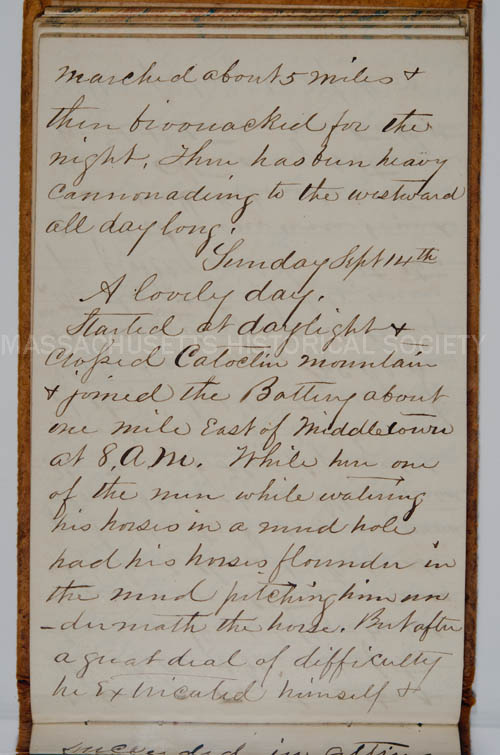 marched about 5 miles &
then bivouacked for the
night. There has been heavy
cannonading to the westward
all day long.
Sunday Sept 14th
A lovely day.
Started at daylight &
MASSACHUSETTS HISTORICAL SOCIETY
crossed Catoctin mountain
& joined the Battery about
one mile East of Middletown
at 8, A.M. While here one
of the men while watering
his horses in a mud hole
had his horses flounder in
the mud pitching him un
-derneath the horse. But after
a great deal of difficulty
he Extricated himself &
succeeded in